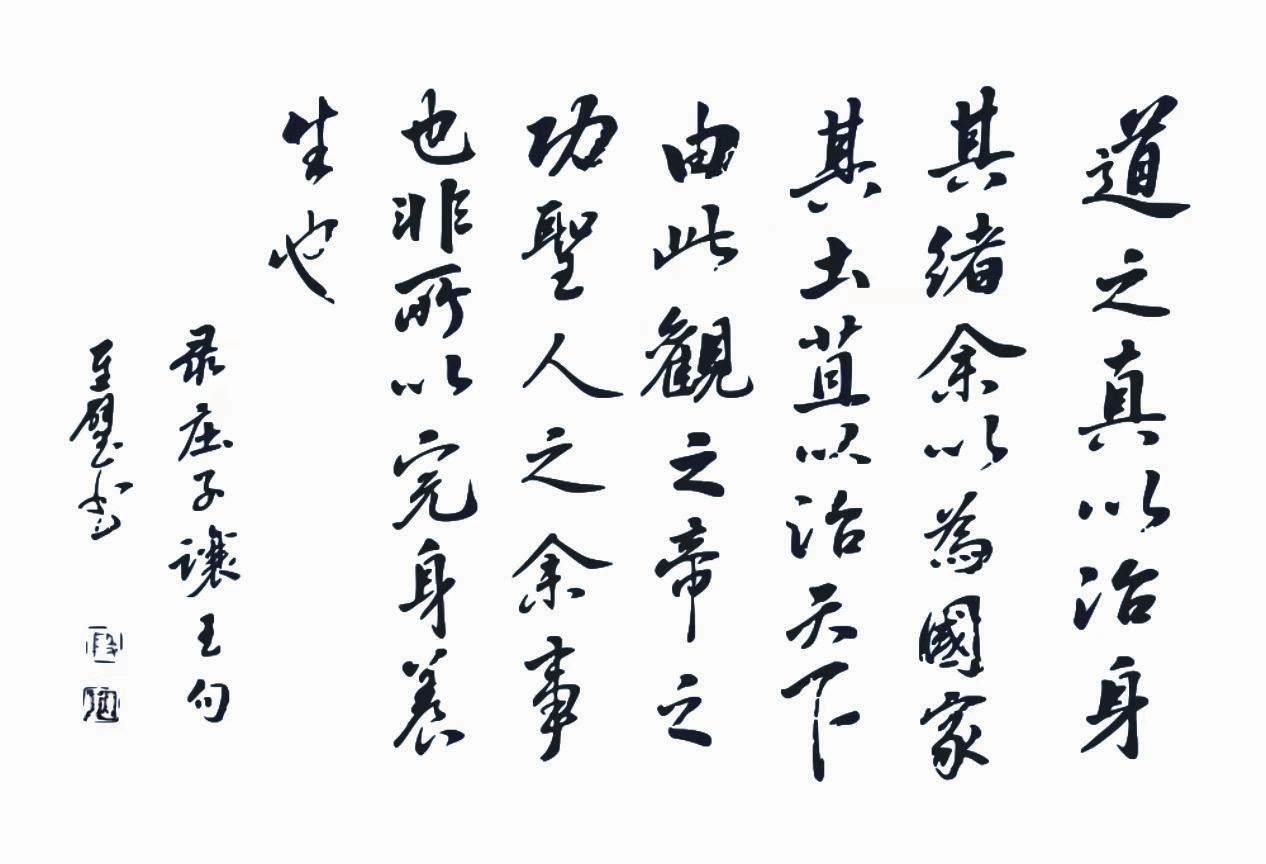 道之真以治身
其绪余以為國家
其土苴以治天下
由此觀之帝之
功聖人之余事
也非所以完身养
生也
录庄子讓王句
璧书